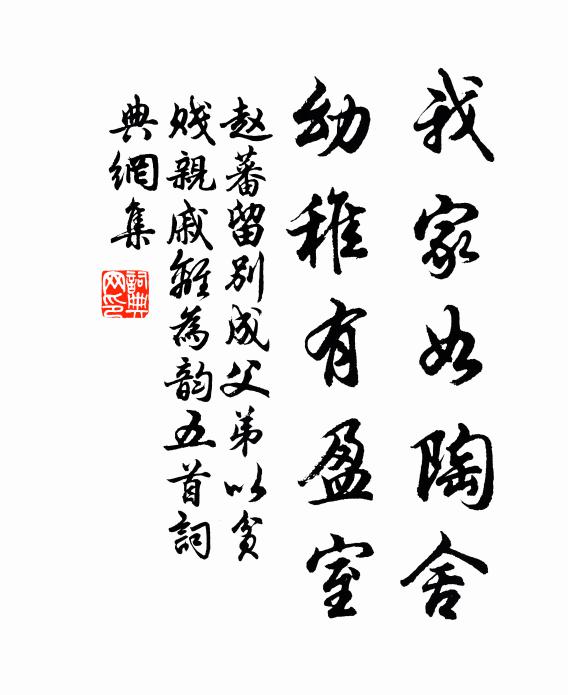 我家如陶舍
幼稚有盈室
赵蕃留别成父弟以贫
贱親戚離為韵五首詞
典網集
詞典网印